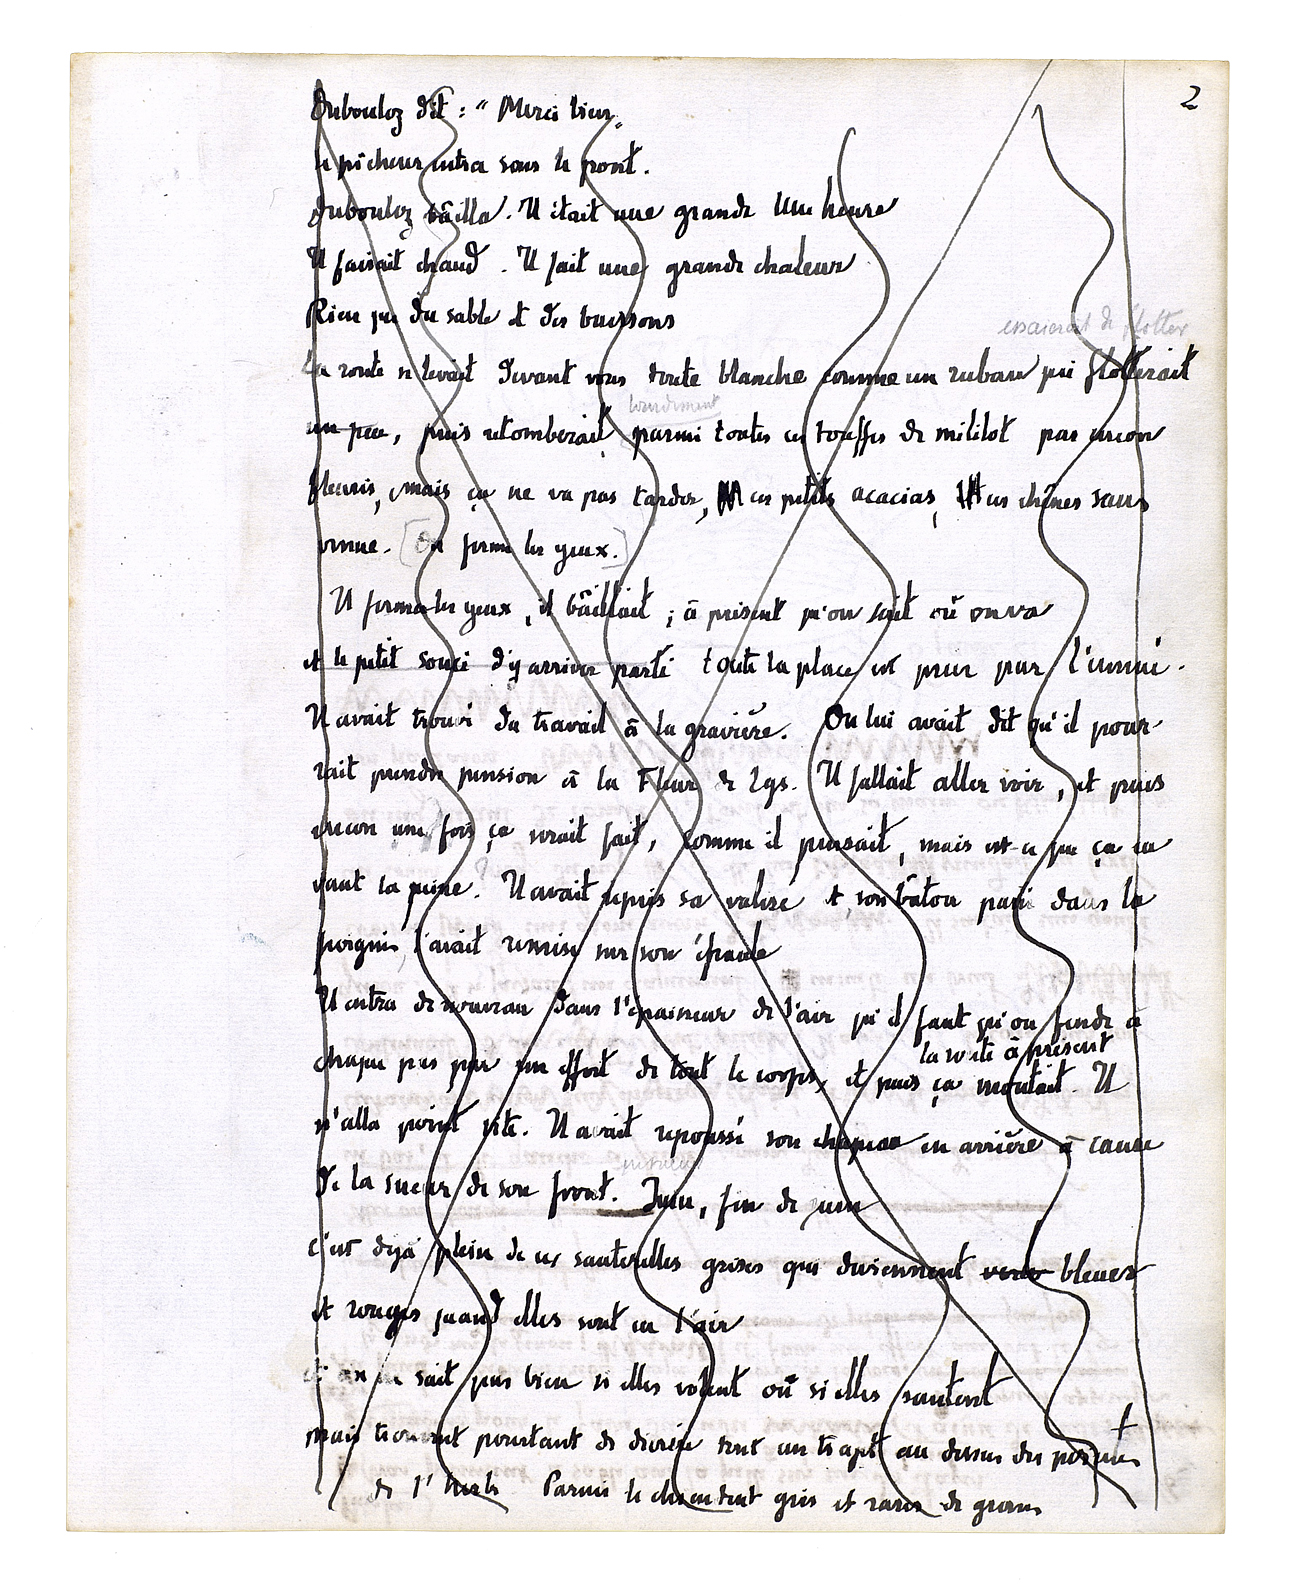 2
Dubouloz dit : " Merci bien "
le pêcheur entra sous le pont.
Dubouloz bâilla. Il était une grande Une heure
Il faisait chaud. Il fait une grande chaleur
Rien que du sable et des buissons
essaierait de flotter
La route se levait devant vous toute blanche comme un ruban qui flotterait
lourdement
un peu, puis retomberait parmi toutes ces touffes de mélilot pas encore
fleuris, mais ça ne va pas tarder, ces petits acacias, ces chênes sans
venue. [On ferme les yeux.]
Il ferma les yeux, il bâillait ; à présent qu'on sait où on va
et le petit souci d'y arriver parti toute la place est prise par l'ennui.
Il avait trouvé du travail à la gravière. On lui avait dit qu'il pour-
rait prendre pension à la Fleur de Lys. Il fallait aller voir, et puis
encore une fois ça serait fait, comme il pensait, mais est-ce que ça en
vaut la peine ? Il avait repris sa valise et, son bâton passé dans la
poignée, l'avait remise sur son épaule
Il entra de nouveau dans l'épaisseur de l'air qu'il faut qu'on fende à
la route à présent
chaque pas par un effort de tout le corps, et puis ça montait. Il
n'alla point vite. Il avait repoussé son chapeau en arrière à cause
de la sueur de son front. Juin, fin de juin
c'est déjà plein de ces sauterelles grises qui deviennent vertes bleues
et rouges quand elles sont en l'air
et on ne sait pas bien si elles volent où si elles sautent
mais trouvent pourtant de dessus des pointes
de l'herbe Parmi le chiendent gris et rares de